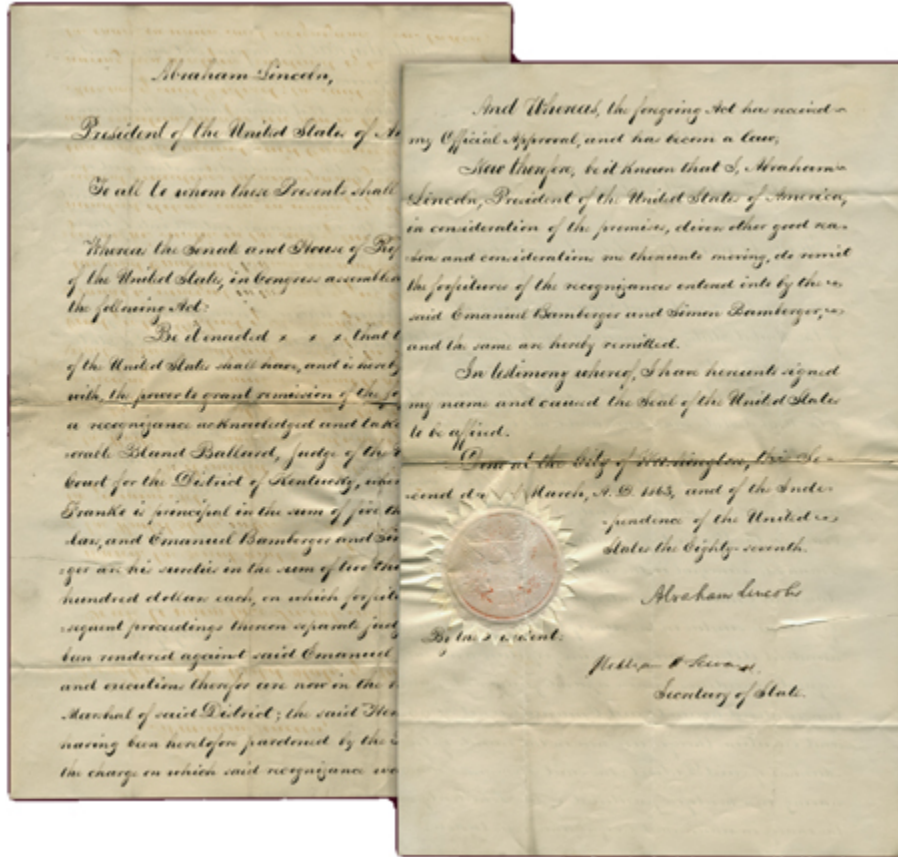 Abraham Lincoln,
President of the United States of
To all to whom these Presents shall
Whereas the Senate and House of
of the United States, in Congress assembled
the following Act:
Be it enacted x x x that
of the United States shall have, and is hereby
with, the power to grant remission of the
a recognizance acknowledged and
Bland Ballard, Judge of the
Court for the District of Kentucky,
is principal in the sum of five
and Emanuel Bamberger and
as his sureties in the sum of two
hundred dollars each, on which
proceedings thereon separate
been rendered against said Emanuel
and executions therefor are now in the
Marshal of said District; the said
having been heretofore pardoned by the
the charge on which said recognizance
And Whereas, the foregoing Act has received
my Official Approval, and has become a law;
Now therefore, be it known that I, Abraham
Lincoln, President of the United States of America,
in consideration of the premises, divers other good rea-
sons and consideration me thereunto moving, do remit
the forfeitures of the recognizances entered into by the
said Emanuel Bamberger and Simon Bamberger,
and the same are hereby remitted.
In testimony whereof, I have hereunto signed
my name and caused the Seal of the United States
to be affixed.
Done at the City of Washington, this Se-
cond March, A.D. 1863, and of the Inde-
pendence of the United
States the Eighty-seventh.
Abraham Lincoln
By the
William H. Seward,
Secretary of State.